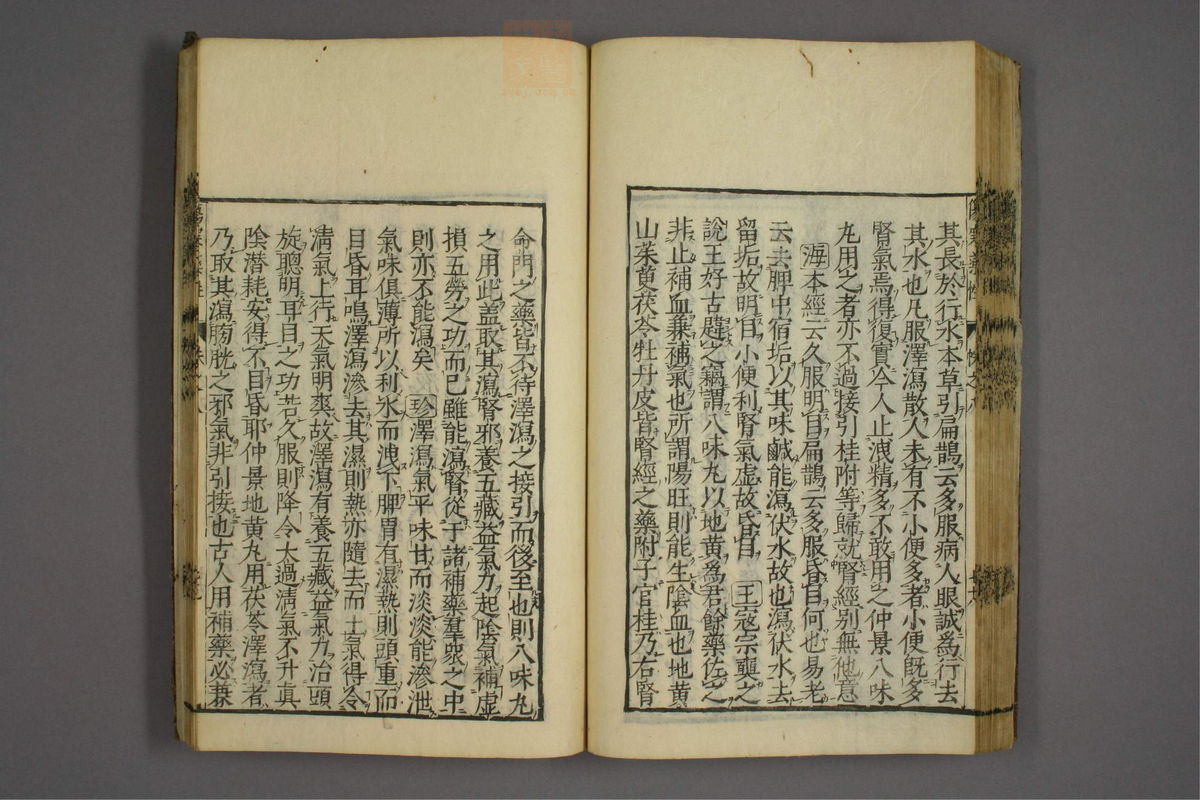 其長於行水本草引扁鵲云多服病人眼誠爲行去
其水也凡服澤瀉散人未有不小便多者小便旣多
腎氣焉得復實今人止洩精多不敢用之仲景八味
丸用之者亦不過接引桂附等歸就腎經別無他意
海本經云久服明目扁鵲云多服昏目何也易老
云去脾中宿垢以其味鹹能瀉伏水故也瀉伏水去
留垢故明目小便利腎氣虛故昏目王寇宗奭之
說王好古韙之竊謂八味丸以地黃爲君餘藥佐之
非止補血兼補氣也所謂陽旺則能生陰血也地黃
山茱萸茯苓牡丹皮皆腎經之藥附子官桂乃右腎
命門之藥皆不待澤瀉之接引而後至也則八味丸
之用此蓋取其瀉腎邪養五藏益氣力起陰氣補虛
損五勞之功而已雖能瀉腎從于諸補藥羣衆之中
則亦不能瀉矣珍澤瀉氣平味甘而淡淡能滲泄
氣味俱薄所以利水而洩下脾胃有濕熱則頭重而
目昏耳鳴澤瀉滲去其濕則熱亦隨去而土氣得令
淸氣上行天氣明爽故澤瀉有養五藏益氣力治頭
旋聰明耳目之功若久服則降令太過淸氣不升眞
陰潜耗安得不目昏耶仲景地黃丸用茯苓澤瀉者
乃取其瀉膀胱之邪氣非引接也古人用補藥必兼